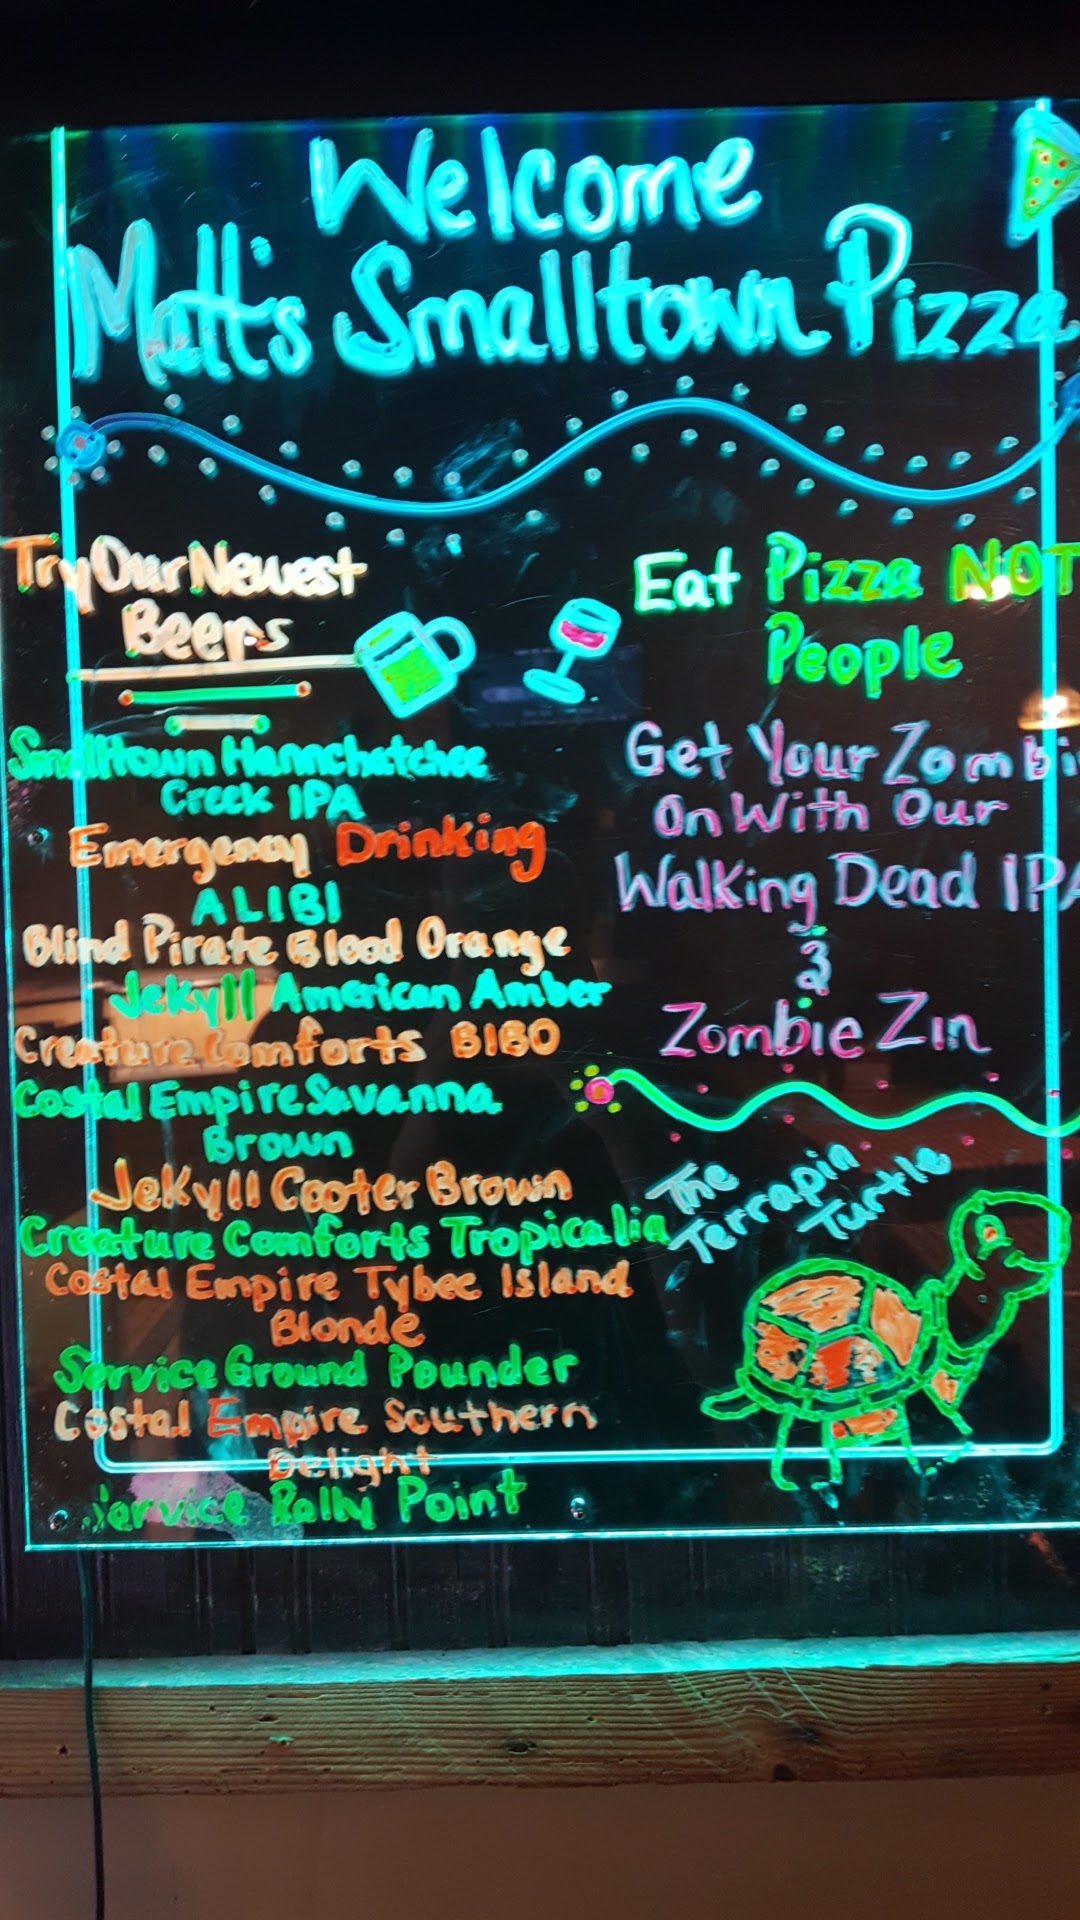 Welcome
Matt's Smalltown Pizza
Try Our Newest
Beers
Smalltown Hannchatchee
Creek IPA
Emergency Drinking
ALIBI
Blind Pirate Blood Orange
Jekyll American Amber
Creature Comforts BIBO
Costal Empire Savanna
Brown
Jekyll Cooter Brown
Creature Comforts Tropicalia
Costal Empire Tybee Island
Blonde
Service Ground Pounder
Costal Empire Southern
Delight
Service Rally Point
Eat Pizza NOT
People
Get Your Zombi
On With Our
Walking Dead IPA
&
Zombie Zin
The
Terrapin
Turtle